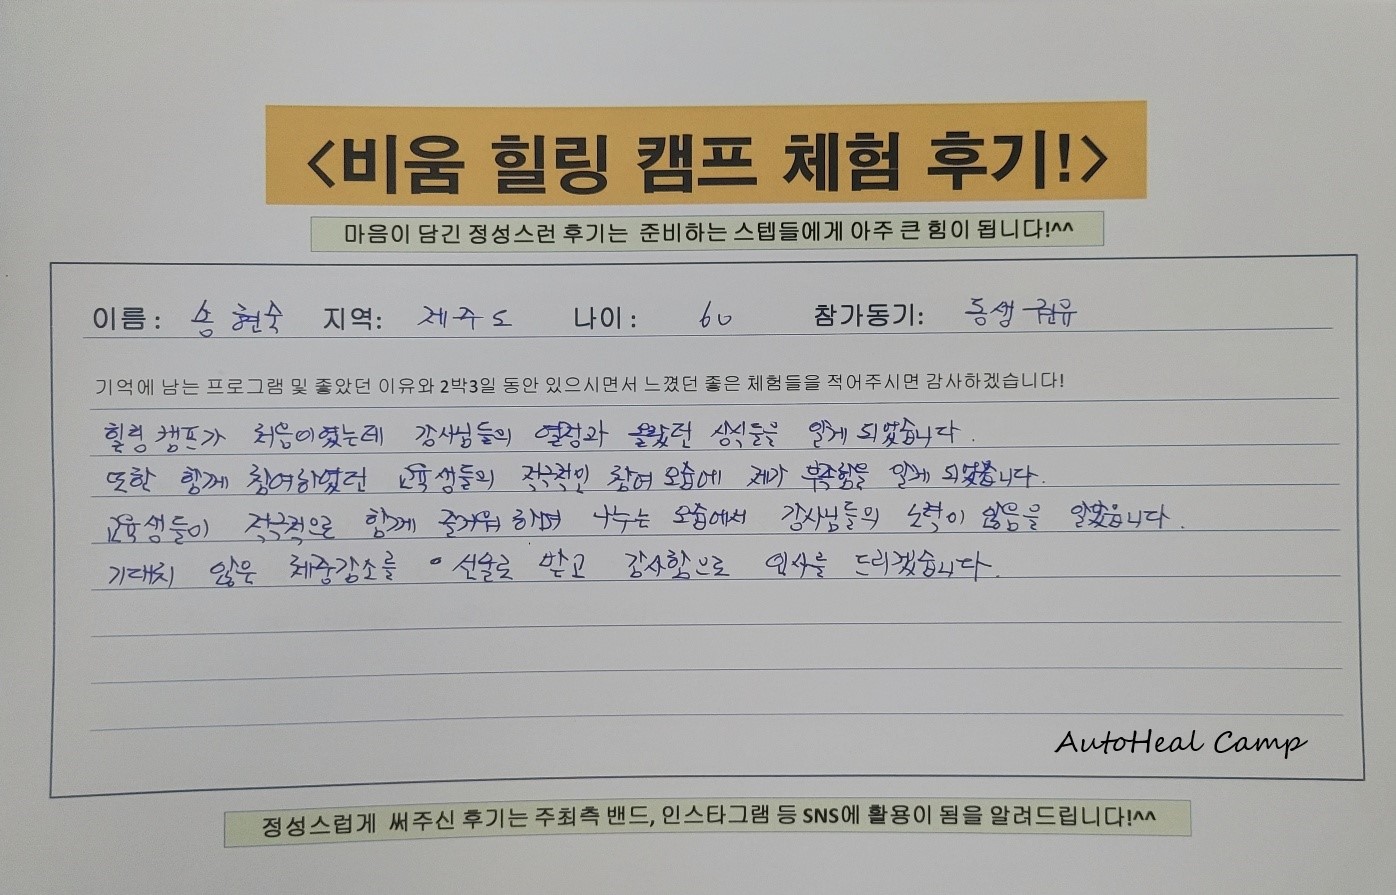 <비움 힐링 캠프 체험 후기!>
마음이 담긴 정성스런 후기는 준비하는 스텝들에게 아주 큰 힘이 됩니다!^^
이름: 송현숙 지역: 제주도 나이: 60 참가동기: 동생 권유
기억에 남는 프로그램 및 좋았던 이유와 2박3일 동안 있으시면서 느꼈던 좋은 체험들을 적어주시면 감사하겠습니다!
힐링 캠프가 처음이였는데 강사님들의 열정과 몰랐던 상식들을 알게 되었습니다.
또한 함께 참여하였던 교육생들의 적극적인 참여 모습에 제가 부족함을 알게 되었습니다.
교육생들이 적극적으로 함께 즐거워 하며 나누는 모습에서 강사님들의 노력이 많음을 알았읍니다.
기대치 않은 체중감소를 선물로 받고 감사함으로 인사를 드리겠습니다.
AutoHeal Camp
정성스럽게 써주신 후기는 주최측 밴드, 인스타그램 등 SNS에 활용이 됨을 알려드립니다!^^